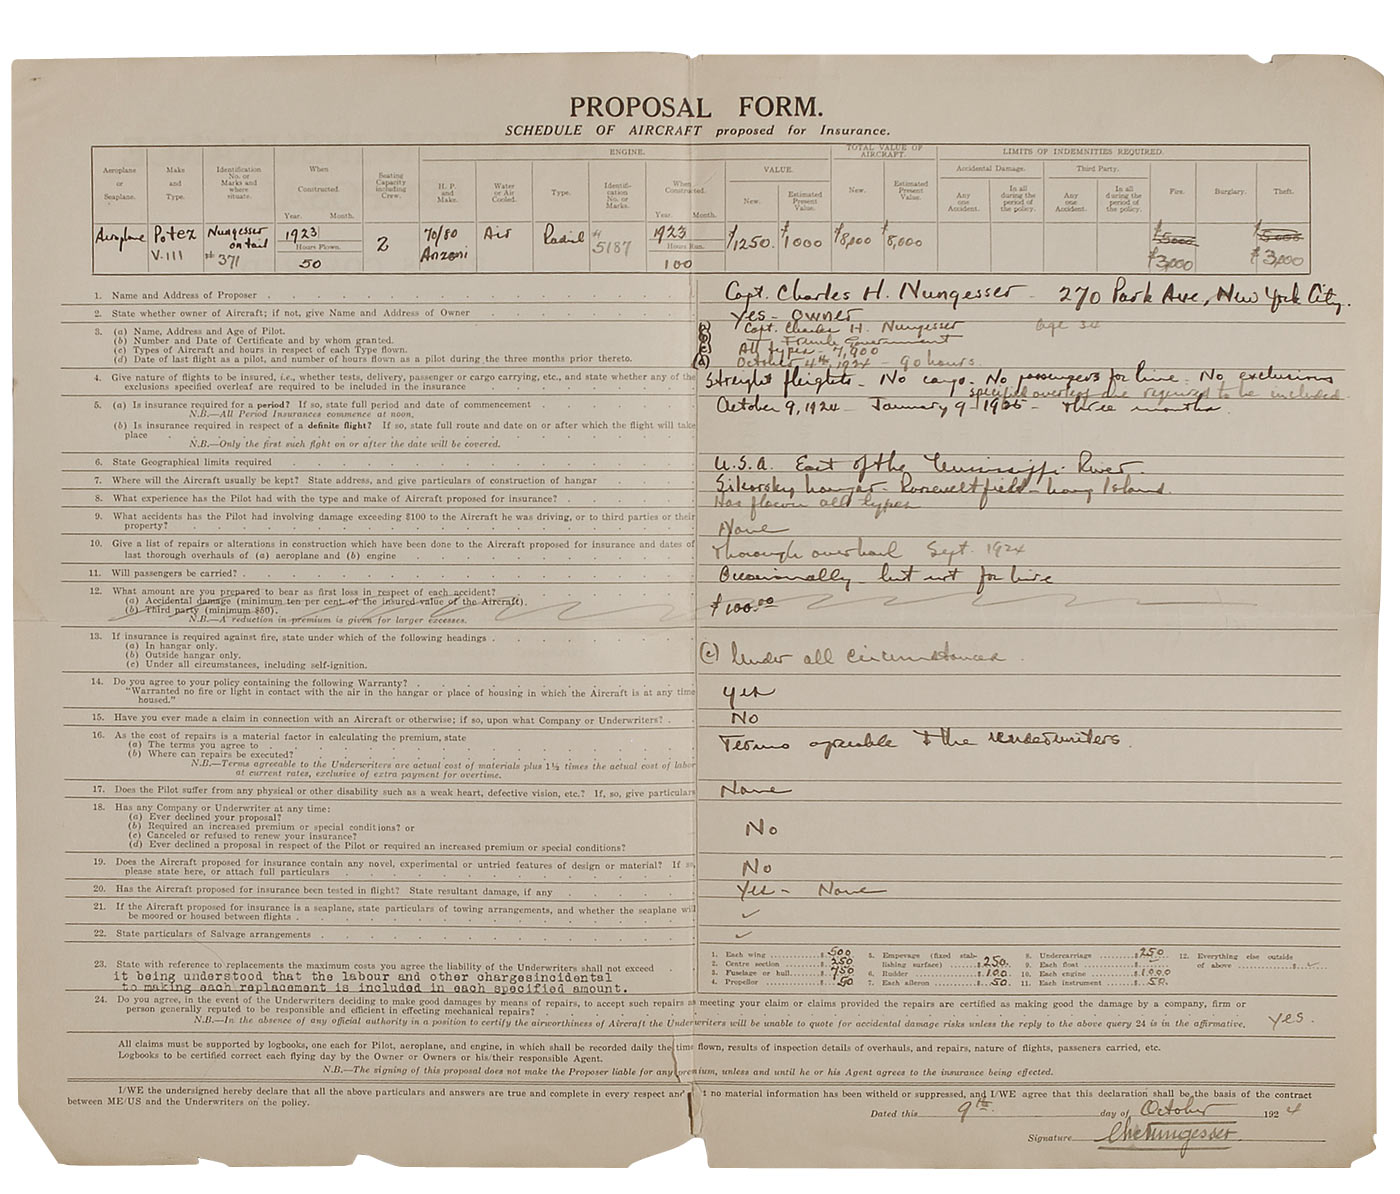 PROPOSAL FORM.
SCHEDULE OF AIRCRAFT proposed for Insurance.
ENGINE.
TOTAL VALUE OF AIRCRAFT.
LIMITS OF INDEMNITIES REQUIRED.
Aeroplane or Seaplane.
Make and Type.
Identification No. or Marks and where situate.
When Constructed. Year. Month.
Seating Capacity including Crew.
H. P. and Make.
Water or Air Cooled.
Type.
Identification No. or Marks.
When Constructed. Year. Month.
VALUE. New. Estimated Present Value.
New. Estimated Present Value.
Accidental Damage. Any one Accident. In all during the period of the policy.
Third Party. Any one Accident. In all during the period of the policy.
Fire. Burglary. Theft.
Aeroplane Potez V.III Nungesser on tail # 371 1923 Hours Flown. 50 2 70/80 Anzani Air Radial # 5187 1923 Hours Run. 100 $1250. $1000 $8,000 $8,000 $5000 $3,000 $5000 $3,000
1. Name and Address of Proposer Capt. Charles H. Nungesser - 270 Park Ave, New York City.
2. State whether owner of Aircraft; if not, give Name and Address of Owner Yes - Owner
3. (a) Name, Address and Age of Pilot. (a) Capt. Charles H. Nungesser age 34
(b) Number and Date of Certificate and by whom granted. French Government
(c) Types of Aircraft and hours in respect of each Type flown. All types - 7,900
(d) Date of last flight as a pilot, and number of hours flown as a pilot during the three months prior thereto. October 4th, 1924 - 90 hours
4. Give nature of flights to be insured, i.e., whether tests, delivery, passenger or cargo carrying, etc., and state whether any of the Streight fleights - No cargo - No passengers for hire. No exclusions
exclusions specified overleaf are required to be included in the insurance specified overleaf are required to be included.
5. (a) Is insurance required for a period? If so, state full period and date of commencement October 9, 1924 - January 9 1925 - three months.
N.B.—All Period Insurances commence at noon.
(b) Is insurance required in respect of a definite flight? If so, state full route and date on or after which the flight will take
place
N.B.—Only the first such flight on or after the date will be covered.
6. State Geographical limits required U.S.A. East of the Mississippi River.
7. Where will the Aircraft usually be kept? State address, and give particulars of construction of hangar Sikorsky hangar - Roosevelt field - Long Island.
8. What experience has the Pilot had with the type and make of Aircraft proposed for insurance? Has flown all types
9. What accidents has the Pilot had involving damage exceeding $100 to the Aircraft he was driving, or to third parties or their
property? None
10. Give a list of repairs or alterations in construction which have been done to the Aircraft proposed for insurance and dates of
last thorough overhauls of (a) aeroplane and (b) engine Thorough overhaul Sept. 1924
11. Will passengers be carried? Occasionally - but not for hire
12. What amount are you prepared to bear as first loss in respect of each accident?
(a) Accidental damage (minimum ten per cent of the insured value of the Aircraft).
(b) Third party (minimum $50). $100.00
N.B.—A reduction in premium is given for larger excesses.
13. If insurance is required against fire, state under which of the following headings
(a) In hangar only.
(b) Outside hangar only. (c) Under all circumstances.
(c) Under all circumstances, including self-ignition.
14. Do you agree to your policy containing the following Warranty?
"Warranted no fire or light in contact with the air in the hangar or place of housing in which the Aircraft is at any time yes
housed."
15. Have you ever made a claim in connection with an Aircraft or otherwise; if so, upon what Company or Underwriters? No
16. As the cost of repairs is a material factor in calculating the premium, state
(a) The terms you agree to Terms agreable to the underwriters.
(b) Where can repairs be executed?
N.B.—Terms agreeable to the Underwriters are actual cost of materials plus 1½ times the actual cost of labor
at current rates, exclusive of extra payment for overtime.
17. Does the Pilot suffer from any physical or other disability such as a weak heart, defective vision, etc.? If, so, give particulars None
18. Has any Company or Underwriter at any time:
(a) Ever declined your proposal?
(b) Required an increased premium or special conditions? or No
(c) Canceled or refused to renew your insurance?
(d) Ever declined a proposal in respect of the Pilot or required an increased premium or special conditions?
19. Does the Aircraft proposed for insurance contain any novel, experimental or untried features of design or material? If so,
please state here, or attach full particulars No
20. Has the Aircraft proposed for insurance been tested in flight? State resultant damage, if any Yes - None
21. If the Aircraft proposed for insurance is a seaplane, state particulars of towing arrangements, and whether the seaplane will
be moored or housed between flights
22. State particulars of Salvage arrangements
23. State with reference to replacements the maximum costs you agree the liability of the Underwriters shall not exceed
it being understood that the labour and other chargesincidental
to making each replacement is included in each specified amount.
1. Each wing $ 500
2. Centre section $ 250
3. Fuselage or hull $ 750
4. Propellor $ 50
5. Empevage (fixed stabilishing surface) $ 250.
6. Rudder $ 100.
7. Each aileron $ 50.
8. Undercarriage $ 250
9. Each float $
10. Each engine $ 1000
11. Each instrument $ 50.
12. Everything else outside of above $
24. Do you agree, in the event of the Underwriters deciding to make good damages by means of repairs, to accept such repairs as meeting your claim or claims provided the repairs are certified as making good the damage by a company, firm or
person generally reputed to be responsible and efficient in effecting mechanical repairs?
N.B.—In the absence of any official authority in a position to certify the airworthiness of Aircraft the Underwriters will be unable to quote for accidental damage risks unless the reply to the above query 24 is in the affirmative. yes.
All claims must be supported by logbooks, one each for Pilot, aeroplane, and engine, in which shall be recorded daily the time flown, results of inspection details of overhauls, and repairs, nature of flights, passeners carried, etc.
Logbooks to be certified correct each flying day by the Owner or Owners or his/their responsible Agent.
N.B.—The signing of this proposal does not make the Proposer liable for any premium, unless and until he or his Agent agrees to the insurance being effected.
I/WE the undersigned hereby declare that all the above particulars and answers are true and complete in every respect and t no material information has been witheld or suppressed, and I/WE agree that this declaration shall be the basis of the contract
between ME/US and the Underwriters on the policy.
Dated this 9th day of October 1924
Signature Ch Nungesser